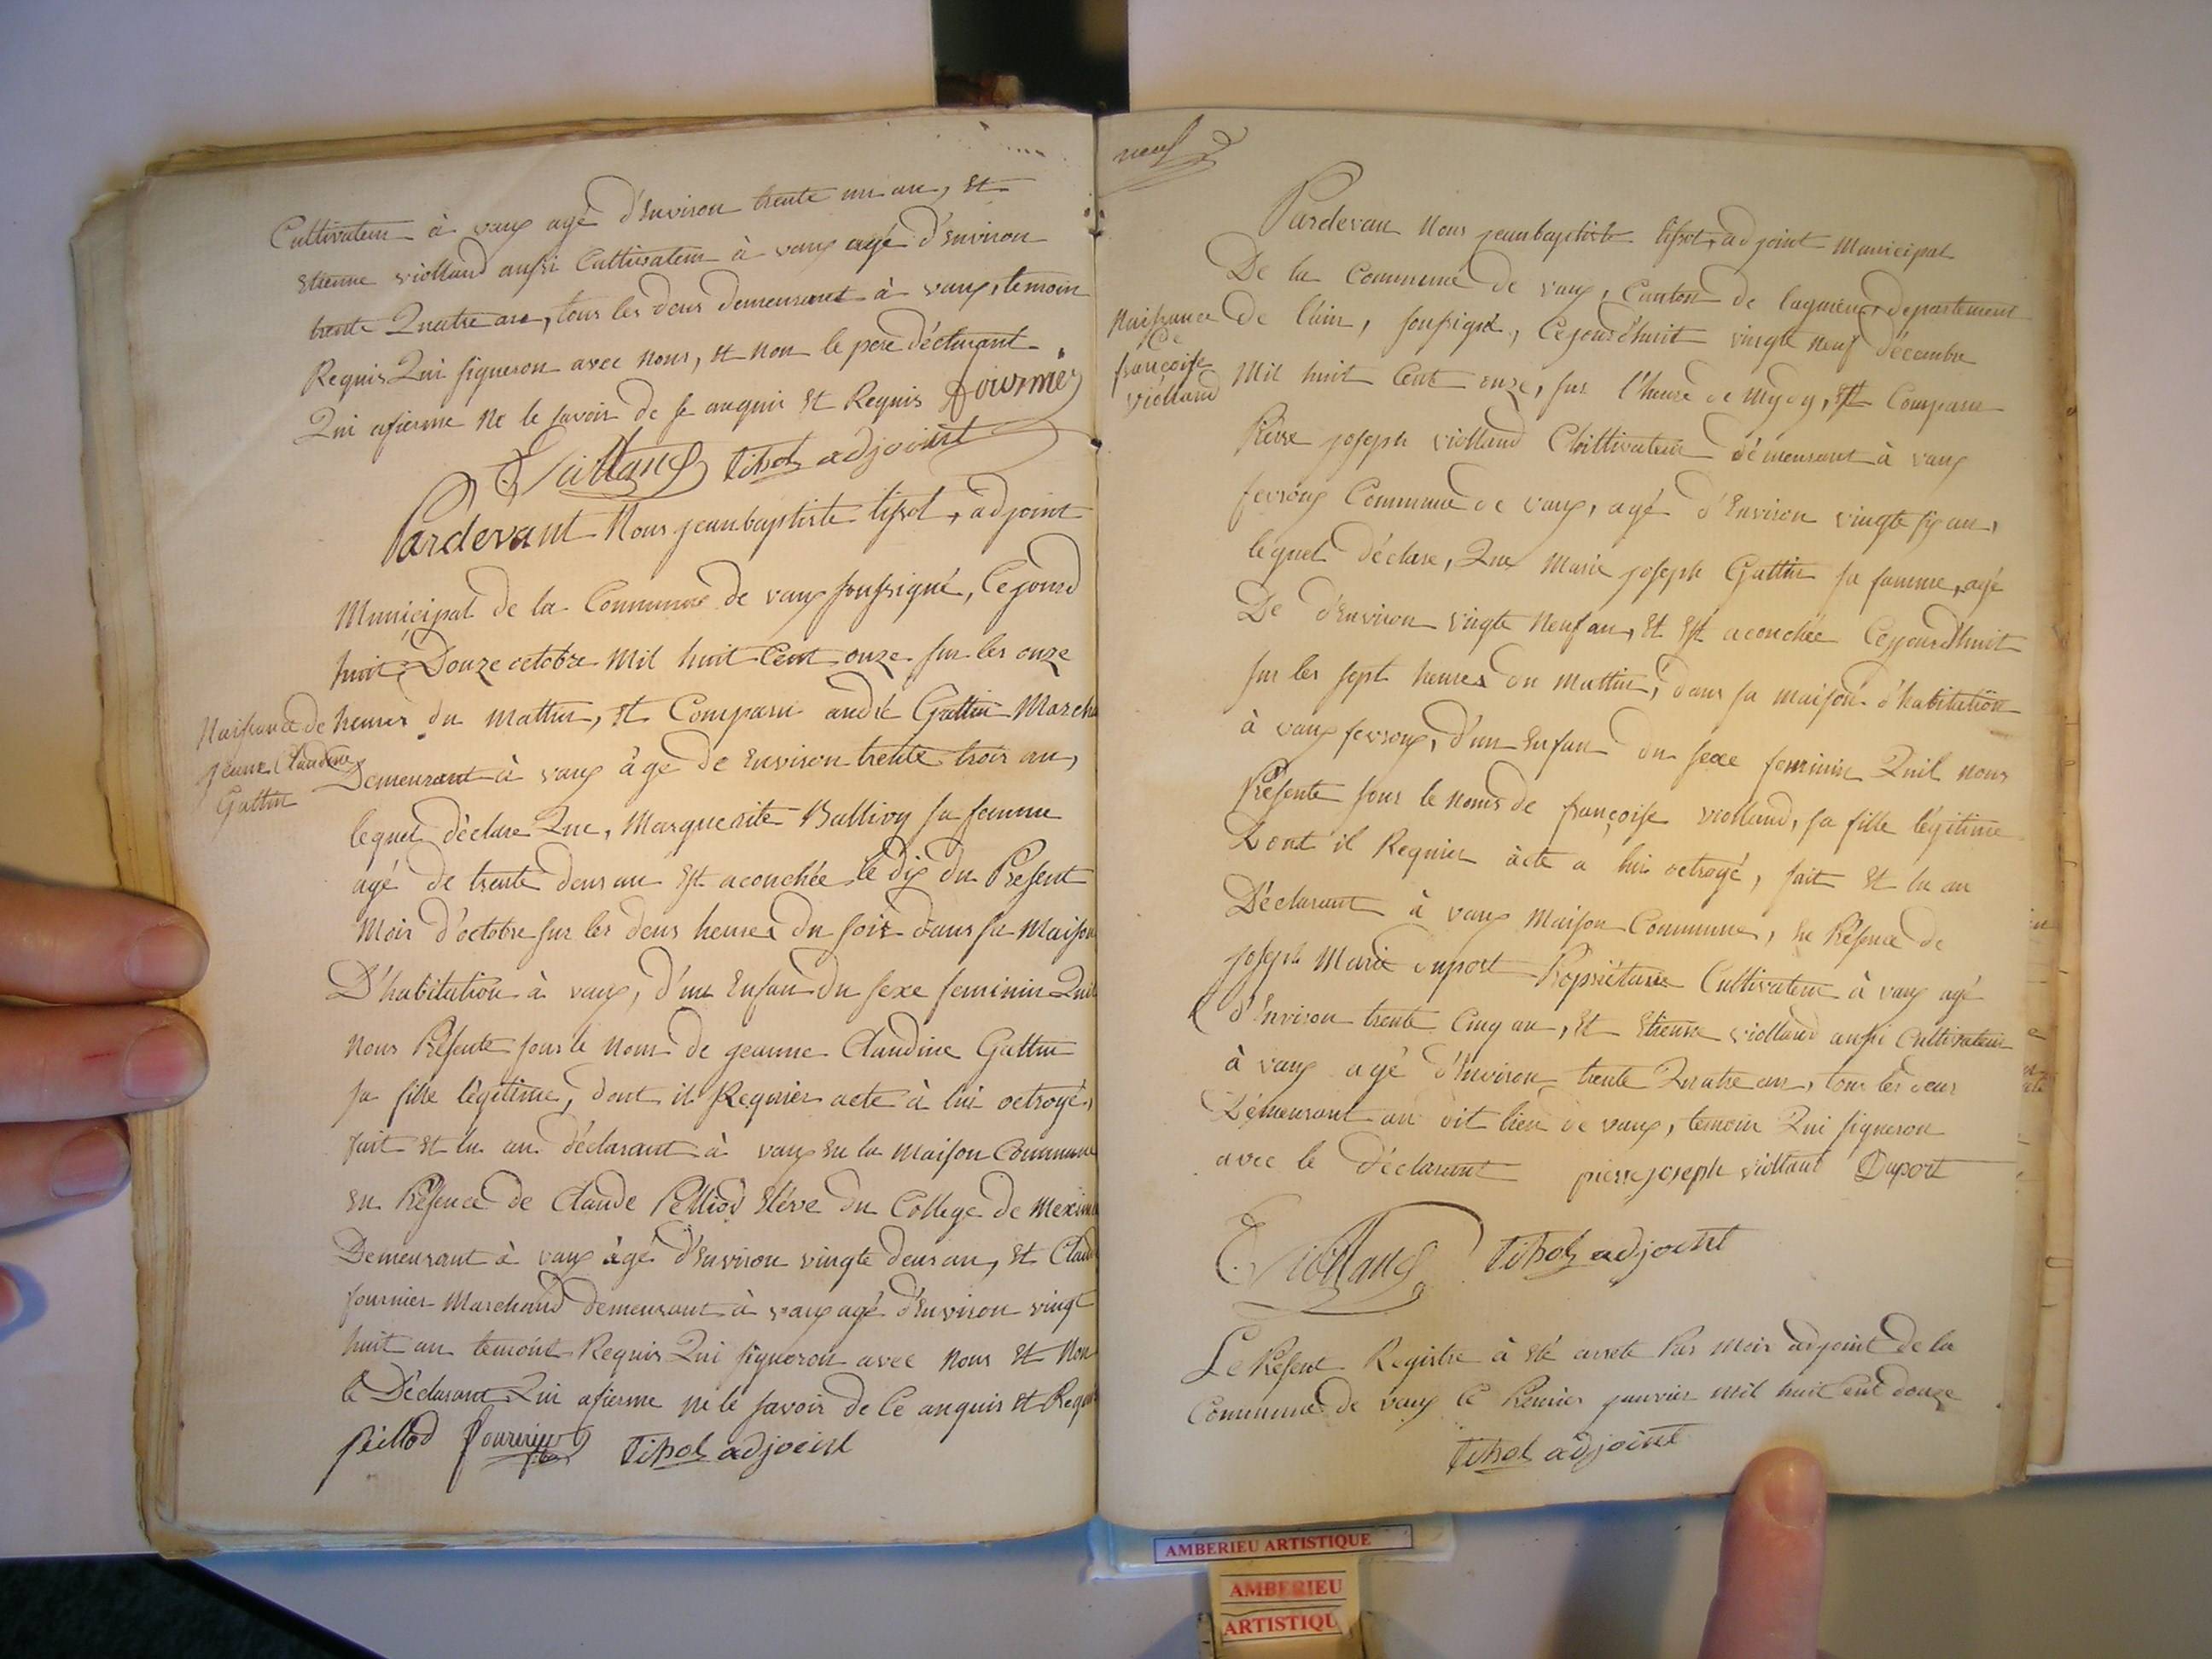 Cultivateur à vaux agé d'Environ trente un an, Et
Etienne violland aussi Cultivateur à vaux agé d'Environ
trente Quatre an, tous les deus demeurant à vaux, temoin
Requis Qui signeron avec nous, et non le pere déclarant
Qui afierme Ne le savoir de se anquis Et Requis fournier
E Violland tissot adjoint
Pardevant Nous jeanbaptiste tissot, adjoint
Municipal de la Commune de vaux soussigné, Cejourd
huit Douze octobre Mil huit Cent onze sur les onze
heures du mattin, Et Comparu andré Gattin March
Demeurant à vaux âgé de Environ trente trois an,
lequel déclare Que, Marguerite Ballivy sa femme
agé de trente deus an Est acouchée le dix du Présent
Mois d'octobre sur les deus heures Du soir dans sa Maison
D'habitation à vaux, d'un Enfan du sexe feminin Quil
Nous Présente sous le Nom de jeanne Claudine Gattin
sa fille légitime, dont il Requier acte à lui octroyé,
fait Et lu au déclarant à vaux En la maison Commune
En Présence de Claude Pelliod Elève du College de Mexim
Demeurant à vaux âgé d'Environ vingte deus an, Et Claud
fournier Marchand demeurant à vaux agé d'Environ vingt
huit an temoint Requis Qui signeron avec Nous Et Non
le Déclarant Qui afierme ne le savoir de Ce anquis Et Requis
peillod fournier tissot adjoint
Naissance de
jeanne Claudine
Gattin
neuf
Pardevan Nous jeanbaptiste tissot, adjoint Municipal
De la Commune de vaux, Canton de lagnieu, departement
de l'ain, soussigné, Cejourd'huit vingte neuf décembre
Mil huit Cent onze, sur l'heure de mydy, Et Comparu
Pierre joseph violland Cultivateur démeurant à vaux
fevroux Commune de vaux, agé d'Environ vingte six an,
lequel déclare, Que Marie joseph Gattin sa famme, agé
De d'Environ vingte Neuf an, Et Est acouchée Cejourd'huit
sur les sept heures du mattin, dans sa maison d'habitation
à vaux fevroux, d'un Enfan du sexe feminin Quil nous
Présente sous le Noms de françoise violland, sa fille légitime
Dont il Requier acte a lui octroyé, fait Et lu au
Déclarant à vaux Maison Commune, En Présence de
joseph Marie duport Propriétaire Cultivateur à vaux agé
d'Environ trente Cinq an, Et Etienne violland aussi Cultivateur
à vaux agé d'Environ trente Quatre an, tous les deus
Démeurant au dit lieu de vaux, temoin Qui signeron
avec le déclarant pierre joseph violland Duport
E Violland tissot adjoint
Naissance
De
françoise
violland
Le Présent Registre à été arreté Par Moir adjoint de la
Commune de vaux Ce Premier janvier Mil huit Cent douze
tissot adjoint
AMBERIEU ARTISTIQUE
AMBERIEU
ARTISTIQU